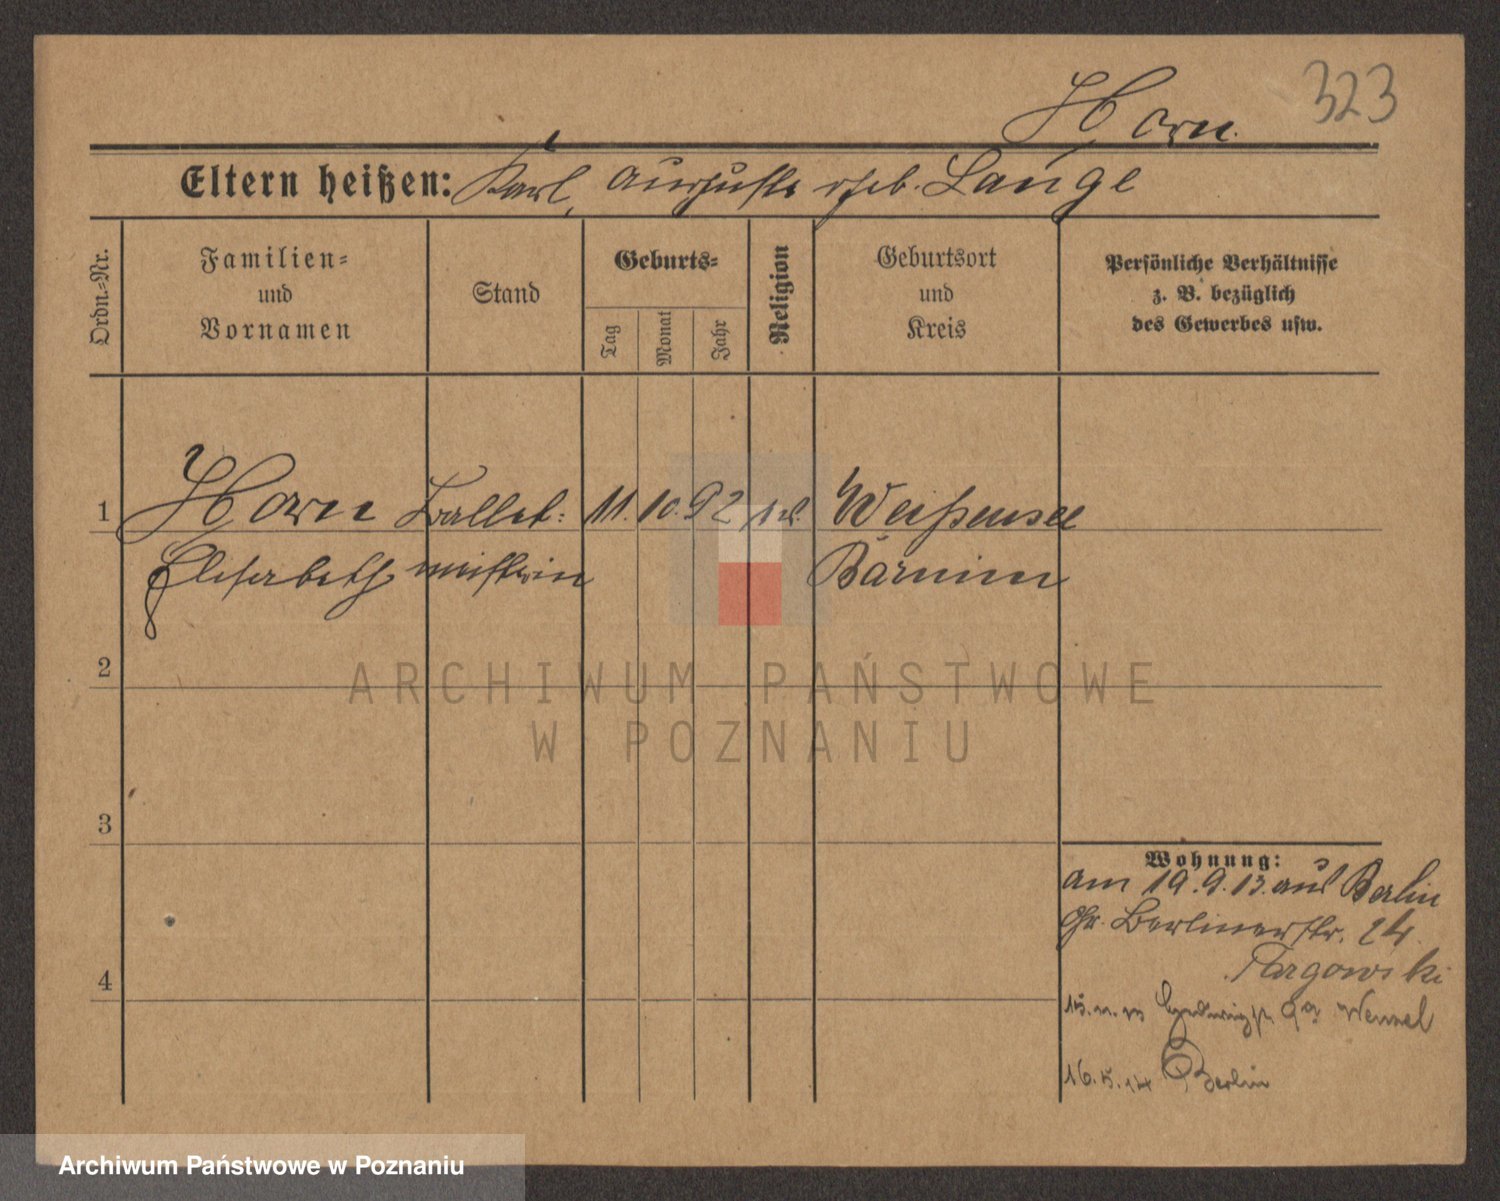 323
Horn.
Eltern heißen: Karl, Auguste geb. Lange
Ordn.-Nr.
Familien-
und
Vornamen
Stand
Geburts-
Tag
Monat
Jahr
Religion
Geburtsort
und
Kreis
Persönliche Verhältnisse
z. B. bezüglich
des Gewerbes usw.
1
Horn Ballet- 11. 10. 92 Weißensee
Elisabeth meisterin Barnim
2
3
4
Wohnung:
am 19.9.13. aus Berlin
Gr. Berlinerstr. 24.
Targowski
15. 11. 13 9a Wenzel
16.5.14 Berlin
ARCHIWUM PAŃSTWOWE
W POZNANIU
Archiwum Państwowe w Poznaniu